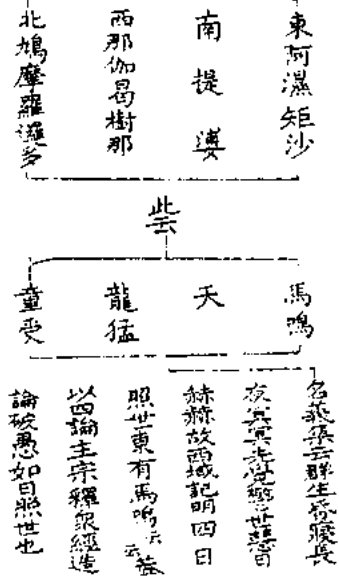 東阿濕矩沙
南提婆
西那伽曷樹那
北鳩摩羅邏多
此云
馬鳴
天
龍猛
童受
名義集云群生昏寢長
夜冥冥先覺警世慧日
赫赫故西域記明四日
照世東有馬鳴云云蓋
以四論主宗釋眾經造
論破愚如日照世也